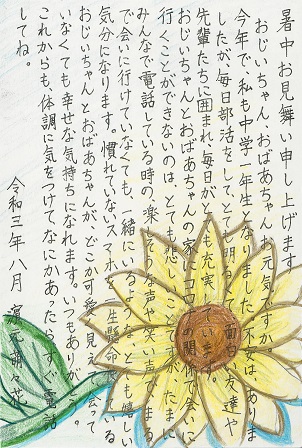 暑中お見舞い申し上げます
おじいちゃん、おばあちゃん、お元気ですか。
今年で、私も中学一年生となりました。不安は、ありま
したが、毎日部活をして、とても明るくて面白い友達や
先輩たちに囲まれ、毎日がとても充実しています。
おじいちゃんとおばあちゃんの家にコロナの関係で会いに
行くことができないのは、とても悲しいことですが、たまに
みんなで電話している時の、楽しそうな声や笑い声でまる
で会いに行けていなくても、一緒にいるような、とても嬉しい
気分になります。慣れていないスマホを一生懸命使っている
おじいちゃんとおばあちゃんが、どこか可愛く見えて会って
いなくても幸せな気持ちになれます。いつもありがとう。
これからも、体調に気をつけて、なにかあったらすぐ電話
してね。
令和三年八月 萌々花